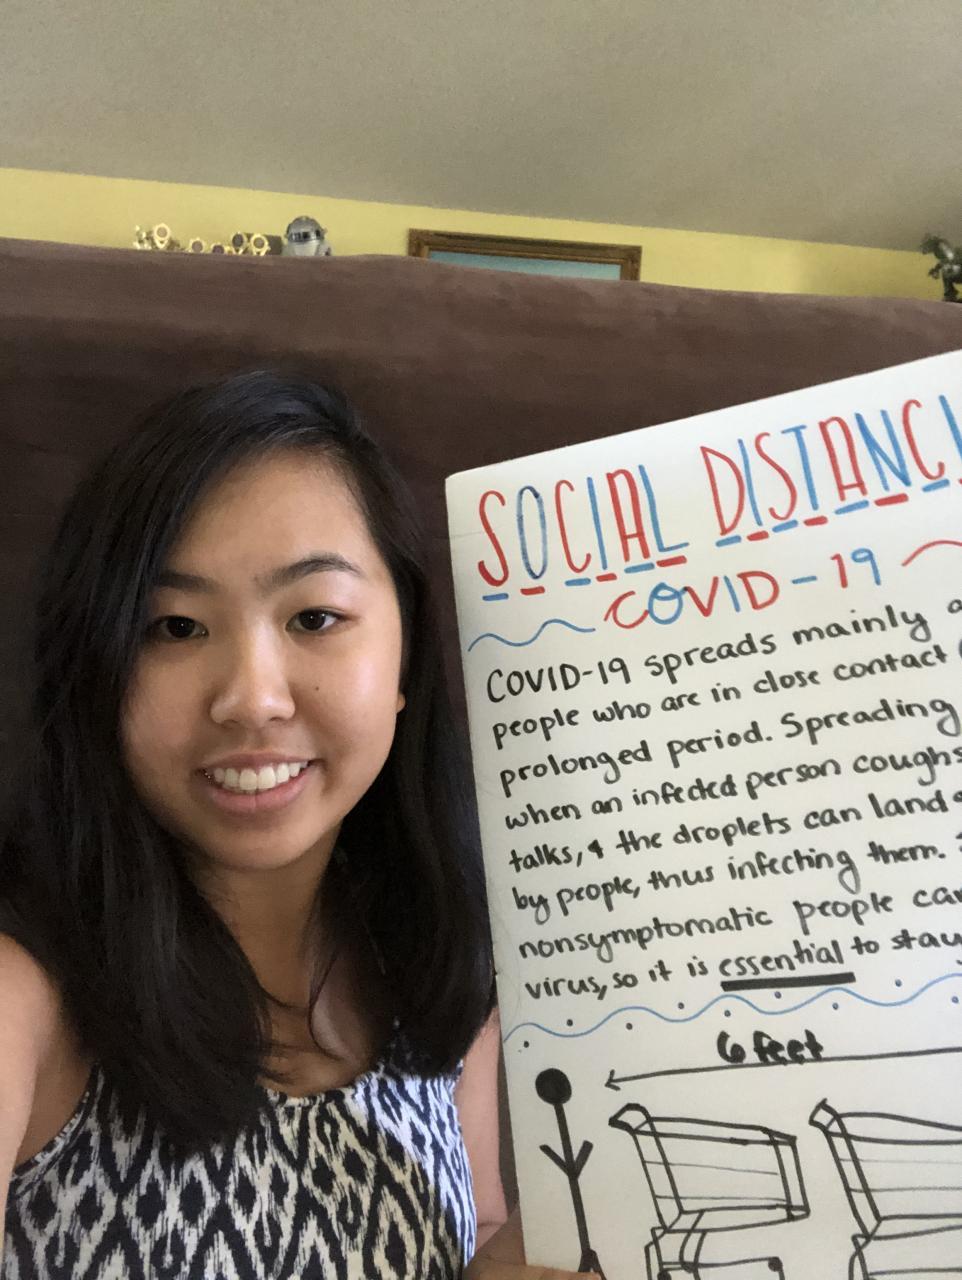 SOCIAL DISTANCI
COVID-19
COVID-19 spreads mainly a
people who are in close contact
prolonged period. Spreading
when an infected person coughs
talks, & the droplets can land
by people, thus infecting them.
nonsymptomatic people can
virus, so it is essential to stay
6 feet